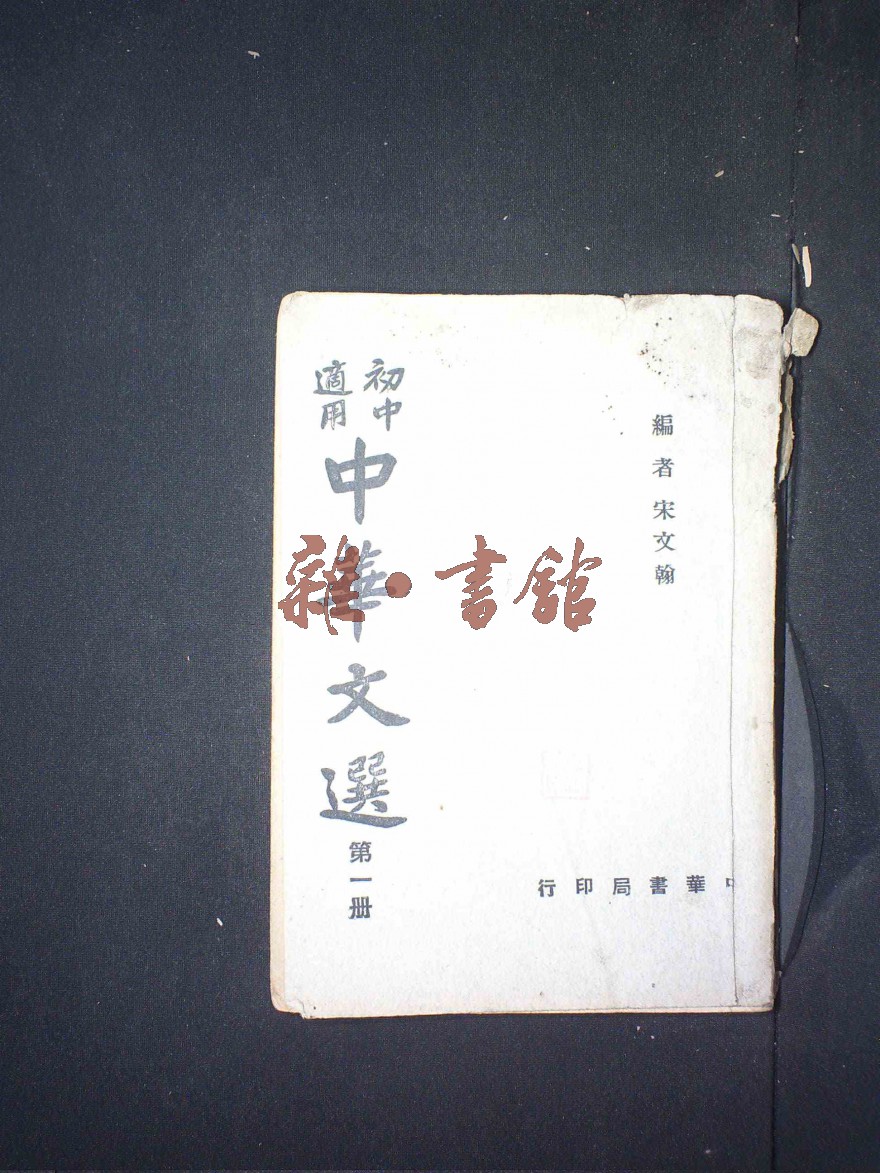 編者 宋文翰
初中
適用
中華文選
第一册
中華書局印行
雜·書館